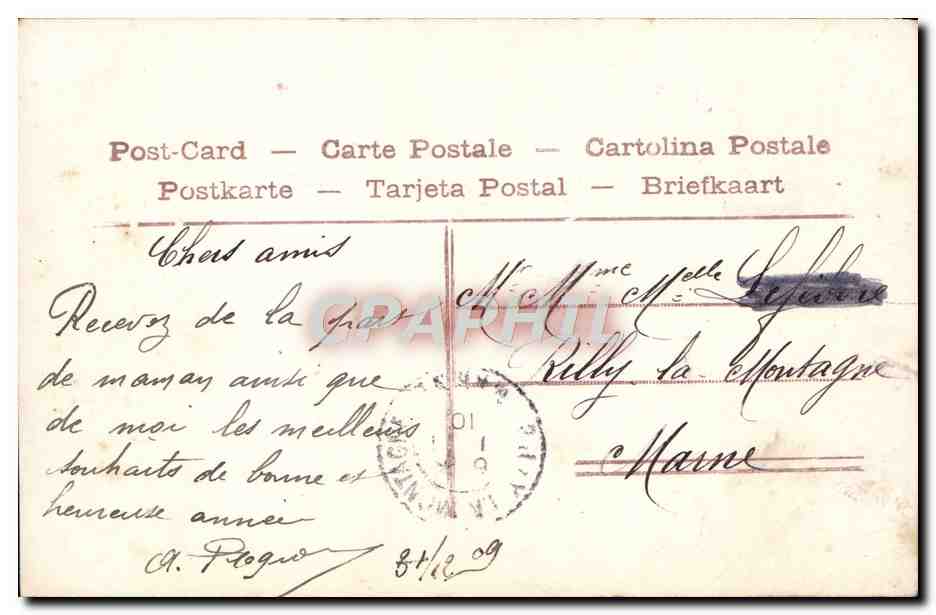 Post-Card — Carte Postale — Cartolina Postale
Postkarte — Tarjeta Postal — Briefkaart
Chers amis
Recevez de la part
de maman ainsi que
de moi les meilleurs
souhaits de bonne et
heureuse année
A.
31/12 09
Mr Mme Melle Lefèvre
Rilly la Montagne
Marne
CPAPHIL
RILLY LA MONTAGNE
MARNE